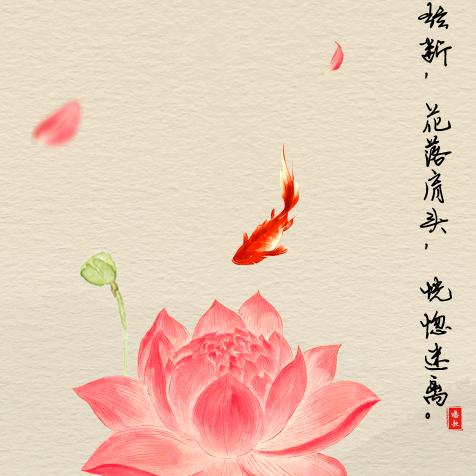 弦断，花落肩头，恍惚迷离。